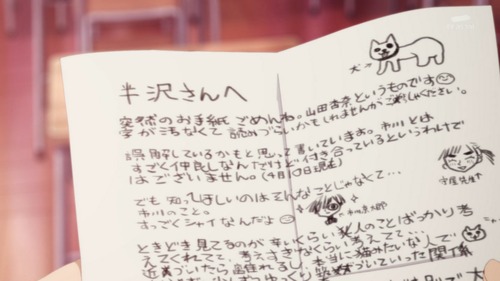 犬
半沢さんへ
突然のお手紙ごめんね。山田杏奈というものです
字が汚なくて読みづらいかもしれませんがご了承ください。
誤解しているかもと思って書いています。市川とは
すごく仲良しなんだけど、付き合っているというわけで
はございません。(4月10日現在)
守屋先生
でも知ってほしいのはそんなことじゃなくて…
市川のこと。
市川京太郎
すっごくシャイなんだよ
ときどき見てるのが辛いくらい他人のことばっかり考
えてくれてて、考えすぎなくらい考えてて…
近づいたら離れるし、本当に猫みたいな人で